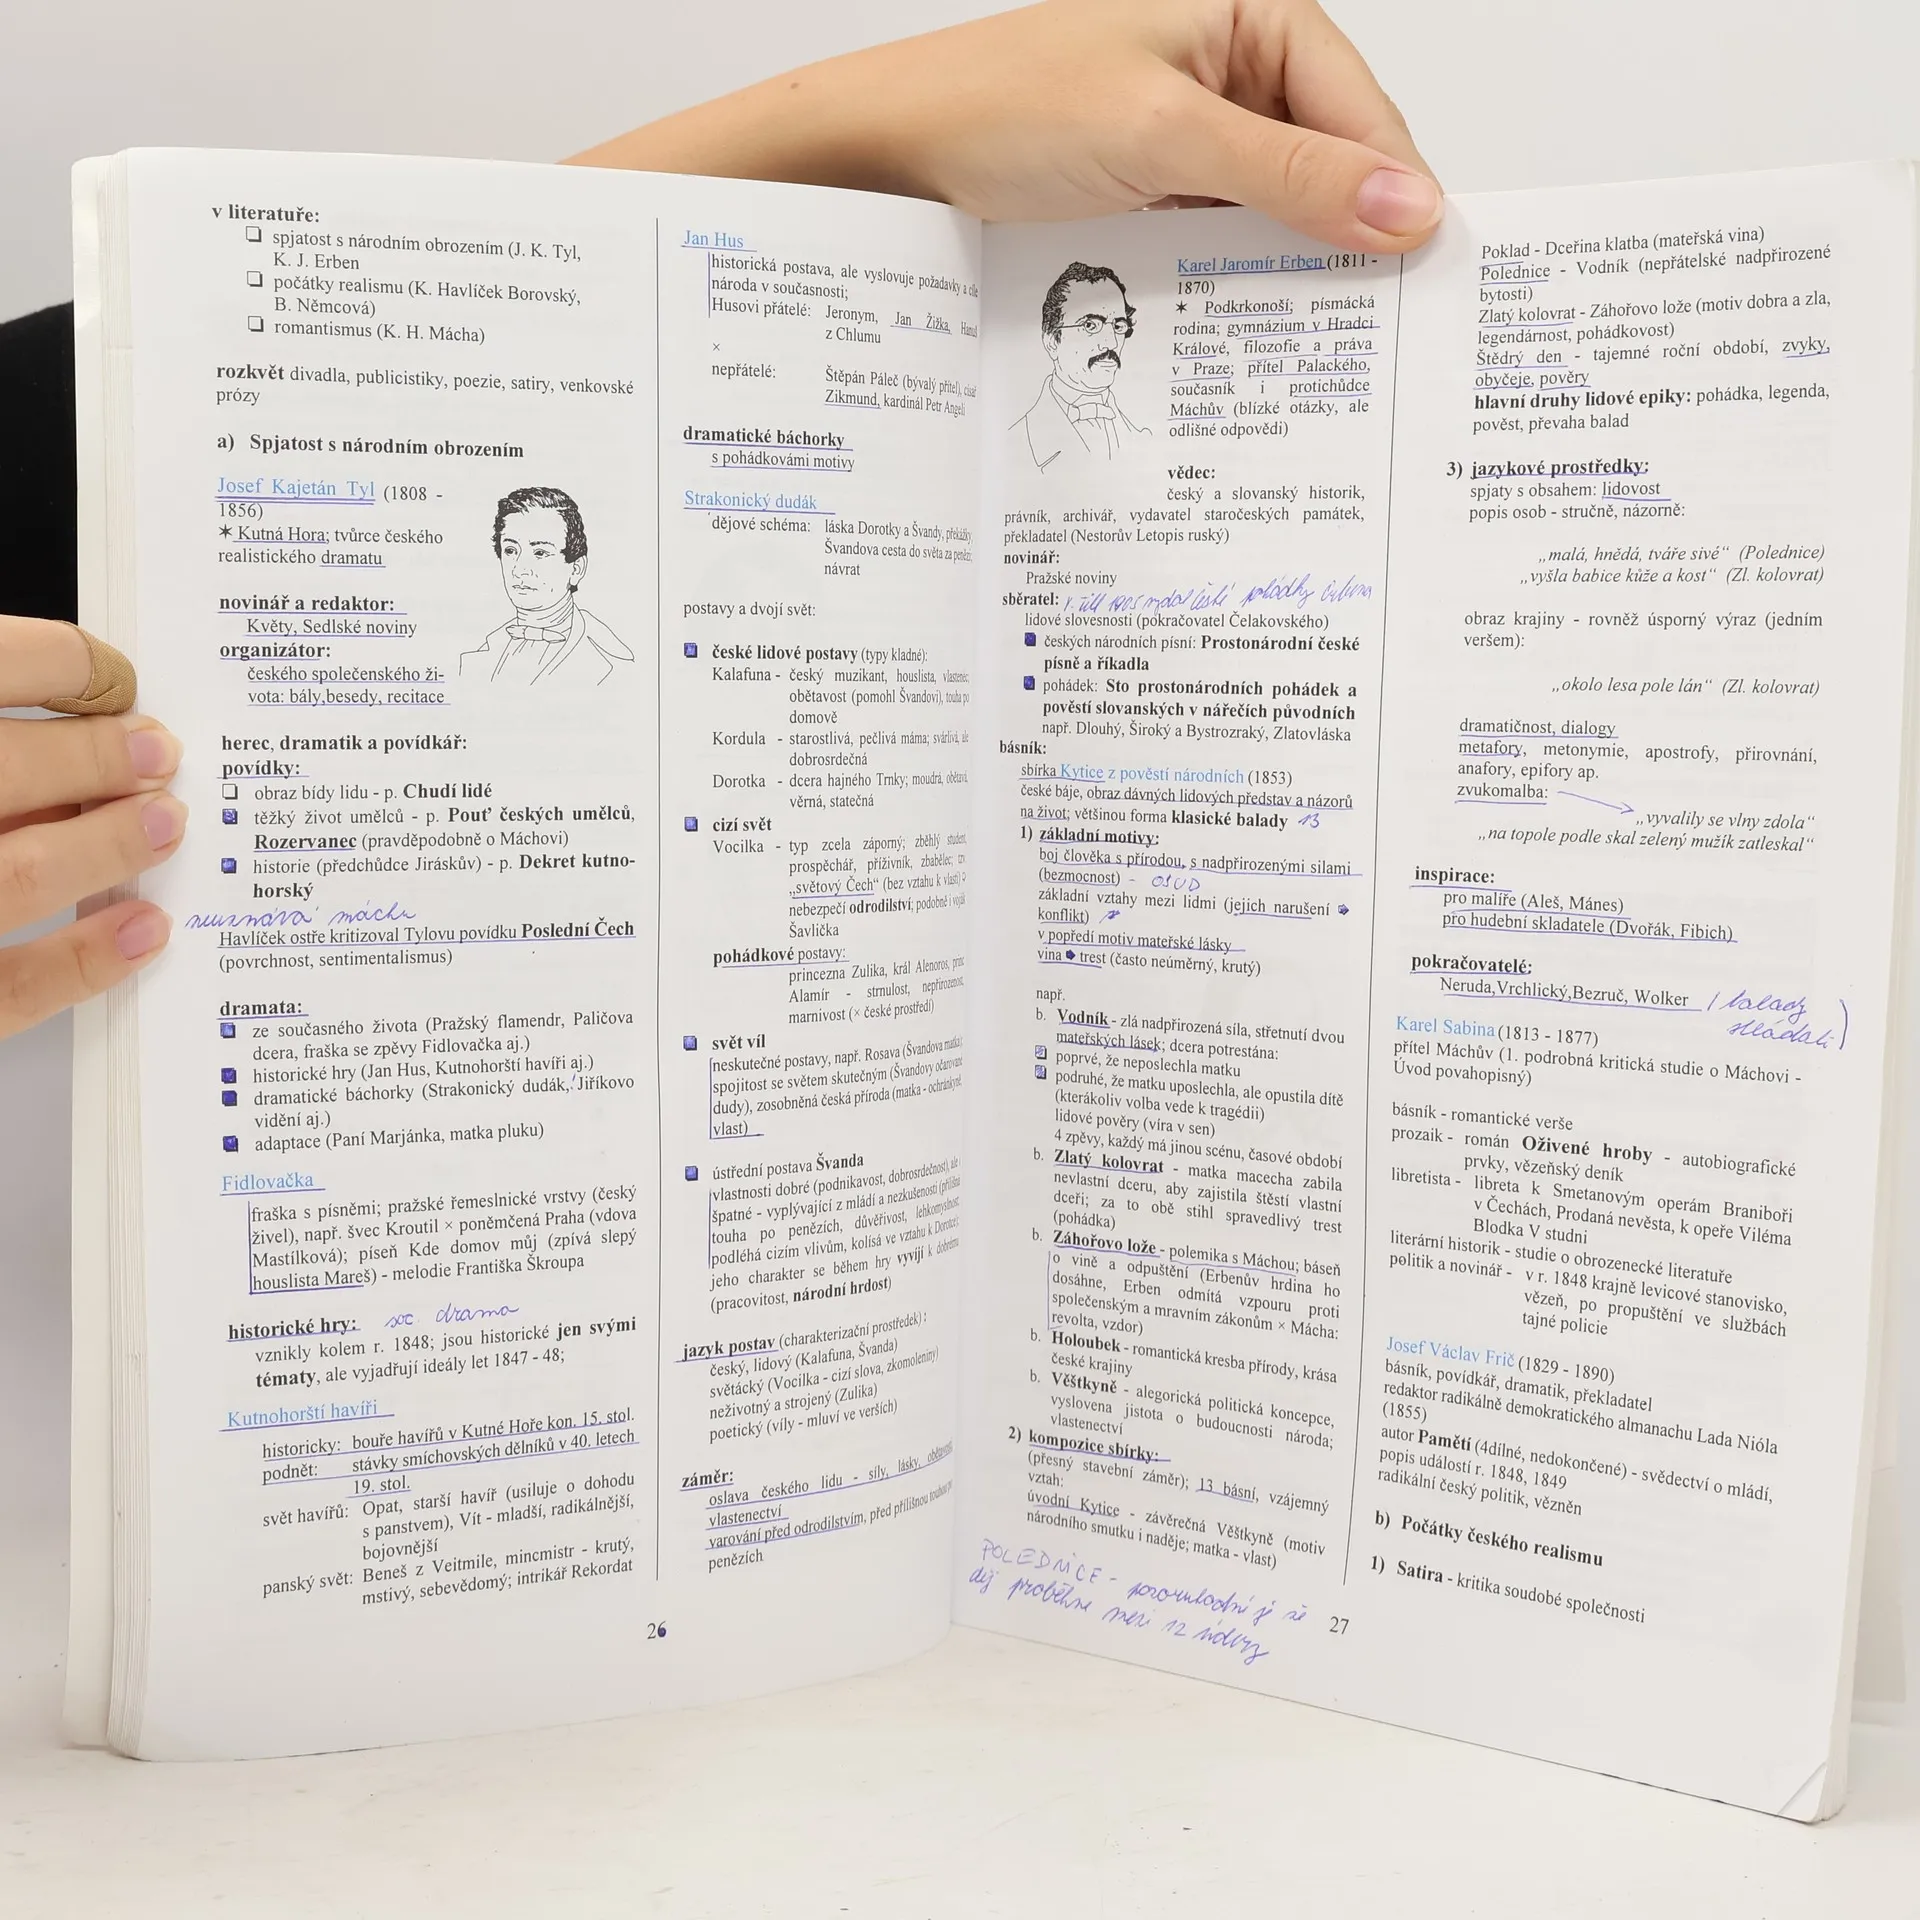 v literatuře:
❏ spjatost s národním obrozením (J. K. Tyl,
K. J. Erben
❏ počátky realismu (K. Havlíček Borovský,
B. Němcová)
❏ romantismus (K. H. Mácha)
rozkvět divadla, publicistiky, poezie, satiry, venkovské
prózy
a) Spjatost s národním obrozením
Josef Kajetán Tyl (1808 -
1856)
✶ Kutná Hora; tvůrce českého
realistického dramatu
novinář a redaktor:
Květy, Sedlské noviny
organizátor:
českého společenského ži-
vota: bály,besedy, recitace
herec, dramatik a povídkář:
povídky:
❏ obraz bídy lidu - p. Chudí lidé
❏ těžký život umělců - p. Pouť českých umělců,
Rozervanec (pravděpodobně o Máchovi)
❏ historie (předchůdce Jiráskův) - p. Dekret kutno-
horský
neuznává máchu
Havlíček ostře kritizoval Tylovu povídku Poslední Čech
(povrchnost, sentimentalismus)
dramata:
❏ ze současného života (Pražský flamendr, Paličova
dcera, fraška se zpěvy Fidlovačka aj.)
❏ historické hry (Jan Hus, Kutnohorští havíři aj.)
❏ dramatické báchorky (Strakonický dudák, Jiříkovo
vidění aj.)
❏ adaptace (Paní Marjánka, matka pluku)
Fidlovačka
fraška s písněmi; pražské řemeslnické vrstvy (český
živel), např. švec Kroutil × poněmčená Praha (vdova
Mastílková); píseň Kde domov můj (zpívá slepý
houslista Mareš) - melodie Františka Škroupa
historické hry: soc. drama
vznikly kolem r. 1848; jsou historické jen svými
tématy, ale vyjadřují ideály let 1847 - 48;
Kutnohorští havíři
historicky: bouře havířů v Kutné Hoře kon. 15. stol.
podnět: stávky smíchovských dělníků v 40. letech
19. stol.
svět havířů: Opat, starší havíř (usiluje o dohodu
s panstvem), Vít - mladší, radikálnější,
bojovnější
panský svět: Beneš z Veitmile, mincmistr - krutý,
mstivý, sebevědomý; intrikář Rekordat
26
Jan Hus
historická postava, ale vyslovuje požadavky a cíle
národa v současnosti;
Husovi přátelé: Jeronym, Jan Žižka,
z Chlumu
×
nepřátelé: Štěpán Páleč (bývalý přítel), císař
Zikmund, kardinál Petr Angeli
dramatické báchorky
s pohádkovámi motivy
Strakonický dudák
dějové schéma: láska Dorotky a Švandy, překážky,
Švandova cesta do světa za penězi,
návrat
postavy a dvojí svět:
❏ české lidové postavy (typy kladné):
Kalafuna - český muzikant, houslista, vlastenec,
obětavost (pomohl Švandovi), touha po
domově
Kordula - starostlivá, pečlivá máma; svárlivá, ale
dobrosrdečná
Dorotka - dcera hajného Trnky; moudrá, obětavá,
věrná, statečná
❏ cizí svět
Vocilka - typ zcela záporný; zběhlý student,
prospěchář, příživník, zbabělec; tzv.
„světový Čech“ (bez vztahu k vlasti)
nebezpečí odrodilství; podobně i voják
Šavlička
pohádkové postavy:
princezna Zulika, král Alenoros, princ
Alamír - strnulost, nepřirozenost,
marnivost (× české prostředí)
❏ svět víl
neskutečné postavy, např. Rosava (Švandova matka);
spojitost se světem skutečným (Švandovy očarované
dudy), zosobněná česká příroda (matka - ochránkyně,
vlast)
❏ ústřední postava Švanda
vlastnosti dobré (podnikavost, dobrosrdečnost), ale i
špatné - vyplývající z mládí a nezkušenosti (přílišná
touha po penězích, důvěřivost, lehkomyslnost,
podléhá cizím vlivům, kolísá ve vztahu k Dorotce);
jeho charakter se během hry vyvíjí k dobrému
(pracovitost, národní hrdost)
jazyk postav (charakterizační prostředek):
český, lidový (Kalafuna, Švanda)
světácký (Vocilka - cizí slova, zkomoleniny)
neživotný a strojený (Zulika)
poetický (víly - mluví ve verších)
záměr:
oslava českého lidu - síly, lásky, obětavosti,
vlastenectví
varování před odrodilstvím, před přílišnou touhou po
penězích
Karel Jaromír Erben (1811 -
1870)
✶ Podkrkonoší; písmácká
rodina; gymnázium v Hradci
Králové, filozofie a práva
v Praze; přítel Palackého,
současník i protichůdce
Máchův (blízké otázky, ale
odlišné odpovědi)
vědec:
český a slovanský historik,
právník, archivář, vydavatel staročeských památek,
překladatel (Nestorův Letopis ruský)
novinář:
Pražské noviny
sběratel: 1905 vydal české pohádky
lidové slovesnosti (pokračovatel Čelakovského)
❏ českých národních písní: Prostonárodní české
písně a říkadla
❏ pohádek: Sto prostonárodních pohádek a
pověstí slovanských v nářečích původních
např. Dlouhý, Široký a Bystrozraký, Zlatovláska
básník:
sbírka Kytice z pověstí národních (1853)
české báje, obraz dávných lidových představ a názorů
na život; většinou forma klasické balady 13
1) základní motivy:
boj člověka s přírodou, s nadpřirozenými silami
(bezmocnost) - OSUD
základní vztahy mezi lidmi (jejich narušení ➩
konflikt)
v popředí motiv mateřské lásky
vina ➩ trest (často neúměrný, krutý)
např.
b. Vodník - zlá nadpřirozená síla, střetnutí dvou
mateřských lásek; dcera potrestána:
❏ poprvé, že neposlechla matku
❏ podruhé, že matku uposlechla, ale opustila dítě
(kterákoliv volba vede k tragédii)
lidové pověry (víra v sen)
4 zpěvy, každý má jinou scénu, časové období
b. Zlatý kolovrat - matka macecha zabila
nevlastní dceru, aby zajistila štěstí vlastní
dceři; za to obě stihl spravedlivý trest
(pohádka)
b. Záhořovo lože - polemika s Máchou; báseň
o vině a odpuštění (Erbenův hrdina ho
dosáhne, Erben odmítá vzpouru proti
společenským a mravním zákonům × Mácha:
revolta, vzdor)
b. Holoubek - romantická kresba přírody, krása
české krajiny
b. Věštkyně - alegorická politická koncepce,
vyslovena jistota o budoucnosti národa;
vlastenectví
2) kompozice sbírky:
(přesný stavební záměr); 13 básní, vzájemný
vztah:
úvodní Kytice - závěrečná Věštkyně (motiv
národního smutku i naděje; matka - vlast)
POLEDNICE - pozoruhodní je že
děj proběhne mezi 12 údery
27
Poklad - Dceřina klatba (mateřská vina)
Polednice - Vodník (nepřátelské nadpřirozené
bytosti)
Zlatý kolovrat - Záhořovo lože (motiv dobra a zla,
legendárnost, pohádkovost)
Štědrý den - tajemné roční období, zvyky,
obyčeje, pověry
hlavní druhy lidové epiky: pohádka, legenda,
pověst, převaha balad
3) jazykové prostředky:
spjaty s obsahem: lidovost
popis osob - stručně, názorně:
„malá, hnědá, tváře sivé“ (Polednice)
„vyšla babice kůže a kost“ (Zl. kolovrat)
obraz krajiny - rovněž úsporný výraz (jedním
veršem):
„okolo lesa pole lán“ (Zl. kolovrat)
dramatičnost, dialogy
metafory, metonymie, apostrofy, přirovnání,
anafory, epifory ap.
zvukomalba:
„vyvalily se vlny zdola“
„na topole podle skal zelený mužík zatleskal“
inspirace:
pro malíře (Aleš, Mánes)
pro hudební skladatele (Dvořák, Fibich)
pokračovatelé:
Neruda,Vrchlický,Bezruč, Wolker (balady
skládali)
Karel Sabina (1813 - 1877)
přítel Máchův (1. podrobná kritická studie o Máchovi -
Úvod povahopisný)
básník - romantické verše
prozaik - román Oživené hroby - autobiografické
prvky, vězeňský deník
libretista - libreta k Smetanovým operám Braniboři
v Čechách, Prodaná nevěsta, k opeře Viléma
Blodka V studni
literární historik - studie o obrozenecké literatuře
politik a novinář - v r. 1848 krajně levicové stanovisko,
vězeň, po propuštění ve službách
tajné policie
Josef Václav Frič (1829 - 1890)
básník, povídkář, dramatik, překladatel
redaktor radikálně demokratického almanachu Lada Nióla
(1855)
autor Pamětí (4dílné, nedokončené) - svědectví o mládí,
popis událostí r. 1848, 1849
radikální český politik, vězněn
b) Počátky českého realismu
1) Satira - kritika soudobé společnosti